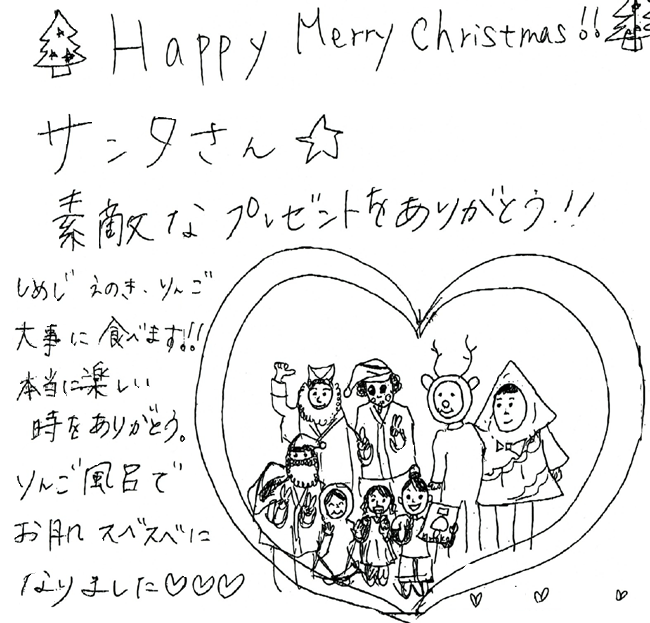 Happy Merry Christmas!!
サンタさん☆
素敵な プレゼントをありがとう!!
しめじ えのき、りんご
大事に食べます!!
本当に楽しい
時をありがとう。
りんご風呂で
お肌 スベスベに
なりました♡♡♡